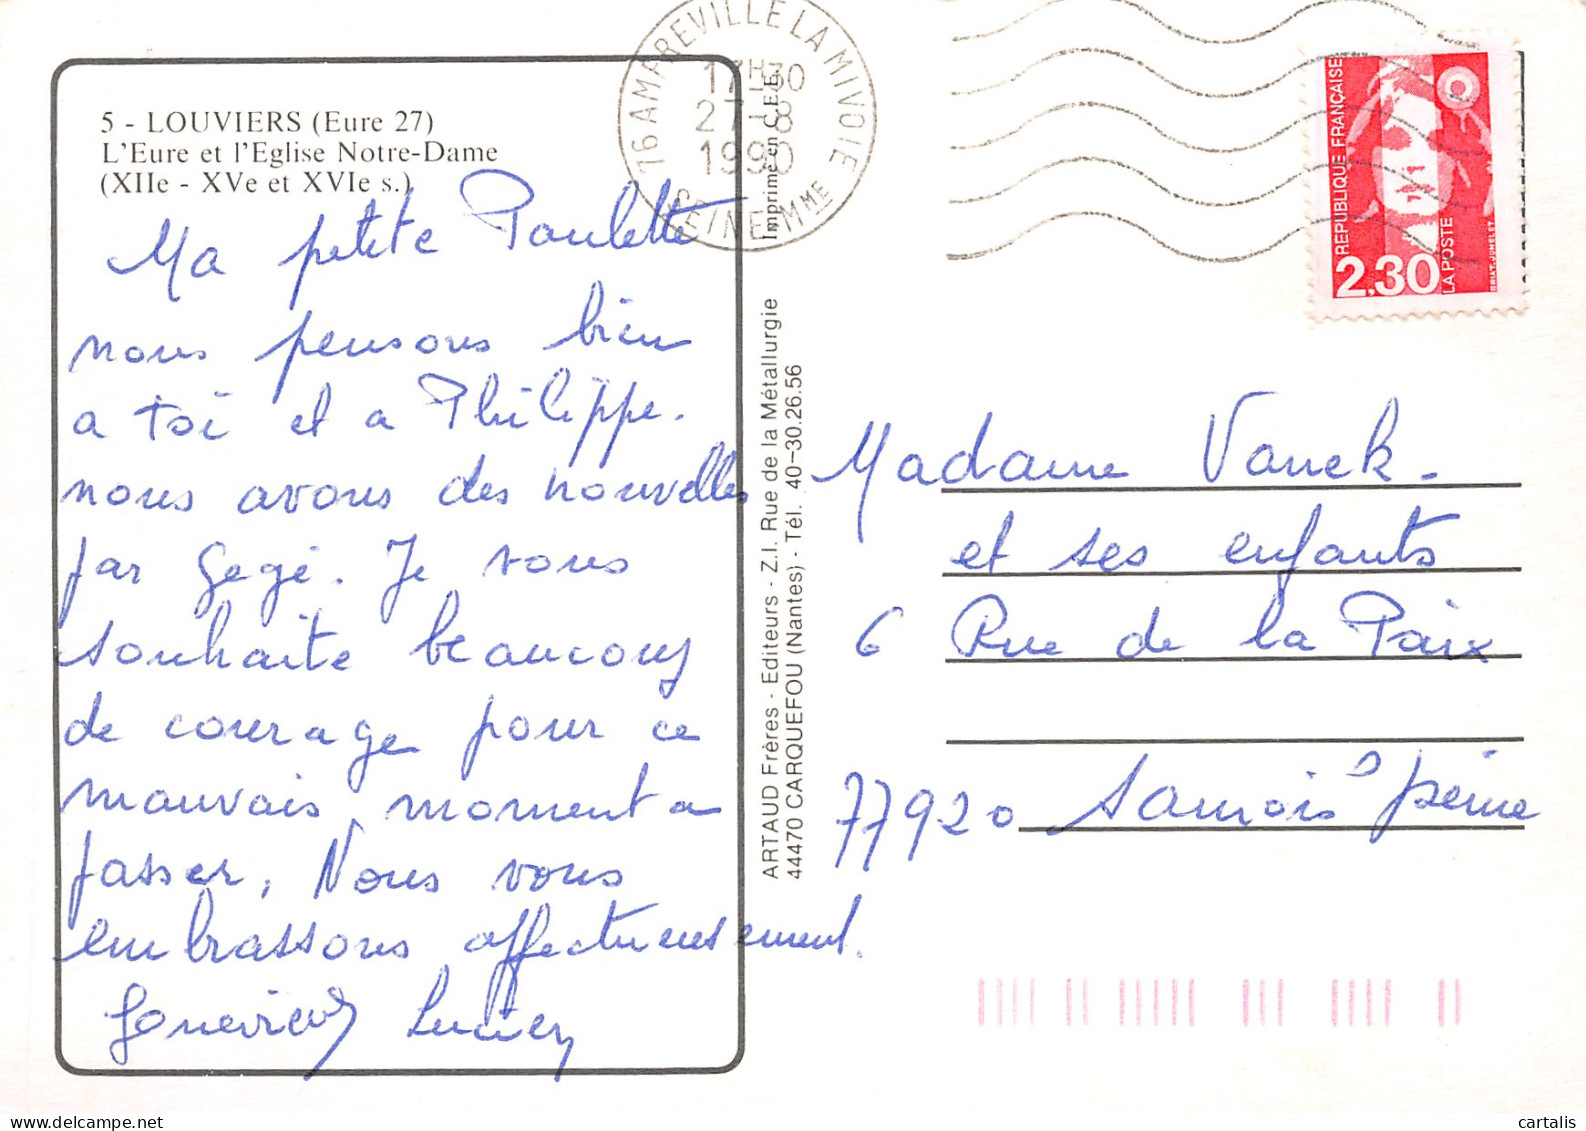 5 - LOUVIERS (Eure 27)
L'Eure et l'Eglise Notre-Dame
(XIIe - XVe et XVIe s.)
Ma petite Paulette
nous pensons bien
a toi et a Philippe.
nous avons des nouvelles
par Gégé. Je vous
souhaite beaucoup
de courage pour ce
mauvais moment a
passer, Nous vous
embrassons affectueusement.
Geneviève Lucien
76 AMFREVILLE LA MIVOIE
17H30
27-8
1990
SEINE MME
Imprimé en C.E.E.
ARTAUD Frères - Editeurs - Z.I. Rue de la Métallurgie
44470 CARQUEFOU (Nantes) - Tél. 40-30.26.56
REPUBLIQUE FRANÇAISE
2,30
LA POSTE
BRIAT-JUMELET
Madame Vanek -
et ses enfants
6 Rue de la Paix
77920 Samois s/ seine
cartalis.com